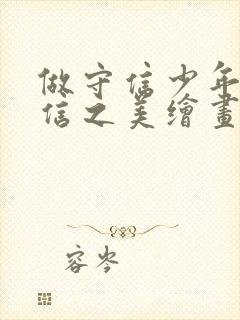 做守信少年
信之美繪畫
容岑